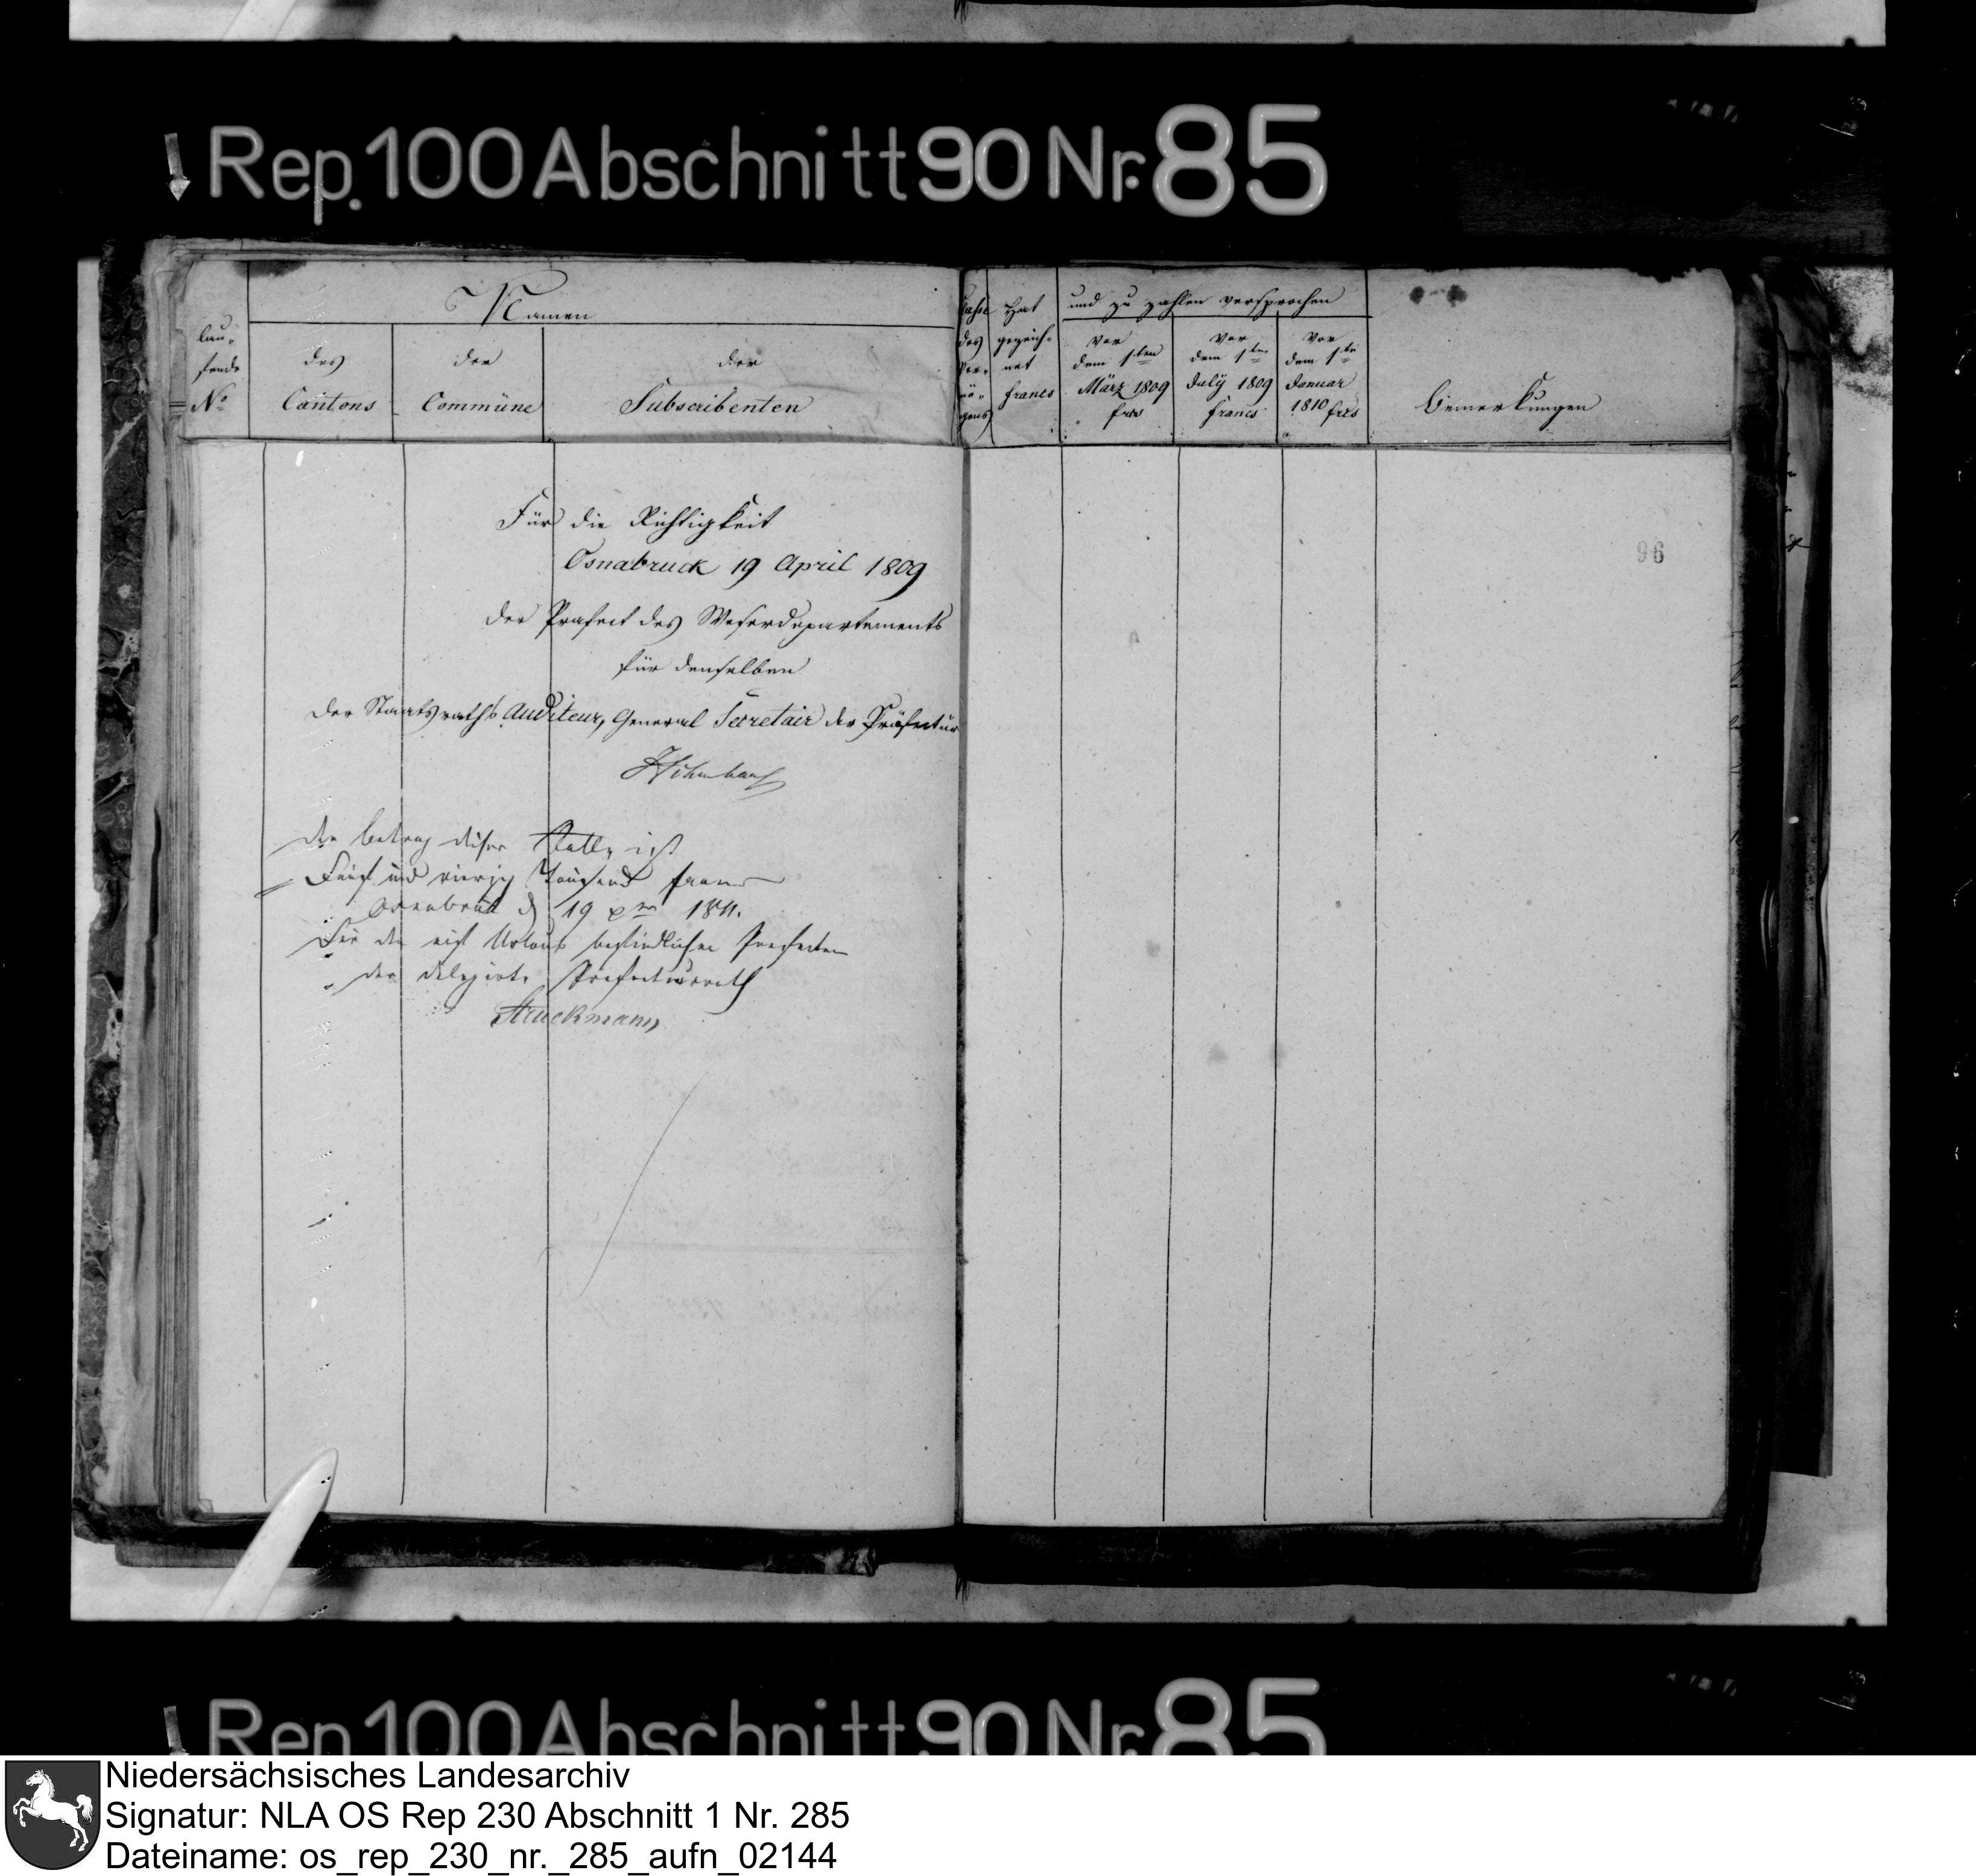 Rep. 100 Abschnitt 90 Nr. 85
Namen
lau-
fende
No
des
Cantons
der
Commüne
der
Subscribenten
des
Ver-
mö-
gens
Hat
gezeich-
net
francs
und zu zahlen versprochen
vor
dem 1ten
März 1809
frcs
vor
dem 1ten
July 1809
francs
vor
dem 1te
Januar
1810 frcs
Bemerkungen
Für die Richtigkeit
Osnabruck 19 April 1809
Der Präfect des Weserdepartements
für denselben
Der Staatsraths Auditeur, General Secretair der Präfectur
96
Der betrag dieser ist
Fünf und vierzig tausend francs
Osnabrück d 19 1811.
Für den auf Urlaub befindlichen Præfecten
der delegirte Præfecturrath
Struckmann
Rep. 100 Abschnitt 90 Nr. 85
Niedersächsisches Landesarchiv
Signatur: NLA OS Rep 230 Abschnitt 1 Nr. 285
Dateiname: os_rep_230_nr._285_aufn_02144